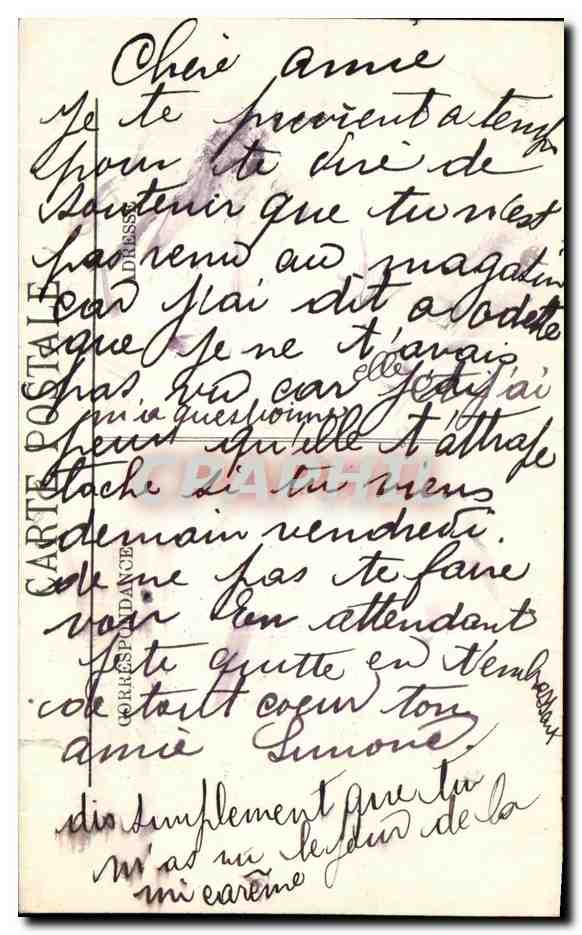 Chère amie
Je te previent a temps
pour te dire de
soutenir que tu n'est
pas venu au magasin
car j'ai dit a odette
que je ne t'avais
pas vu car elle j'ai
m'a questionner
peur qu'elle t'attrape
tache si tu viens
demain vendredi.
de ne pas te faire
voir En attendant
je te quitte en t'embrassant
de tout coeur ton
amie Simone.
dis simplement que tu
m'as vu le jour de la
mi carême
CARTE POSTALE
CORRESPONDANCE
ADRESSE
CPAPHIL